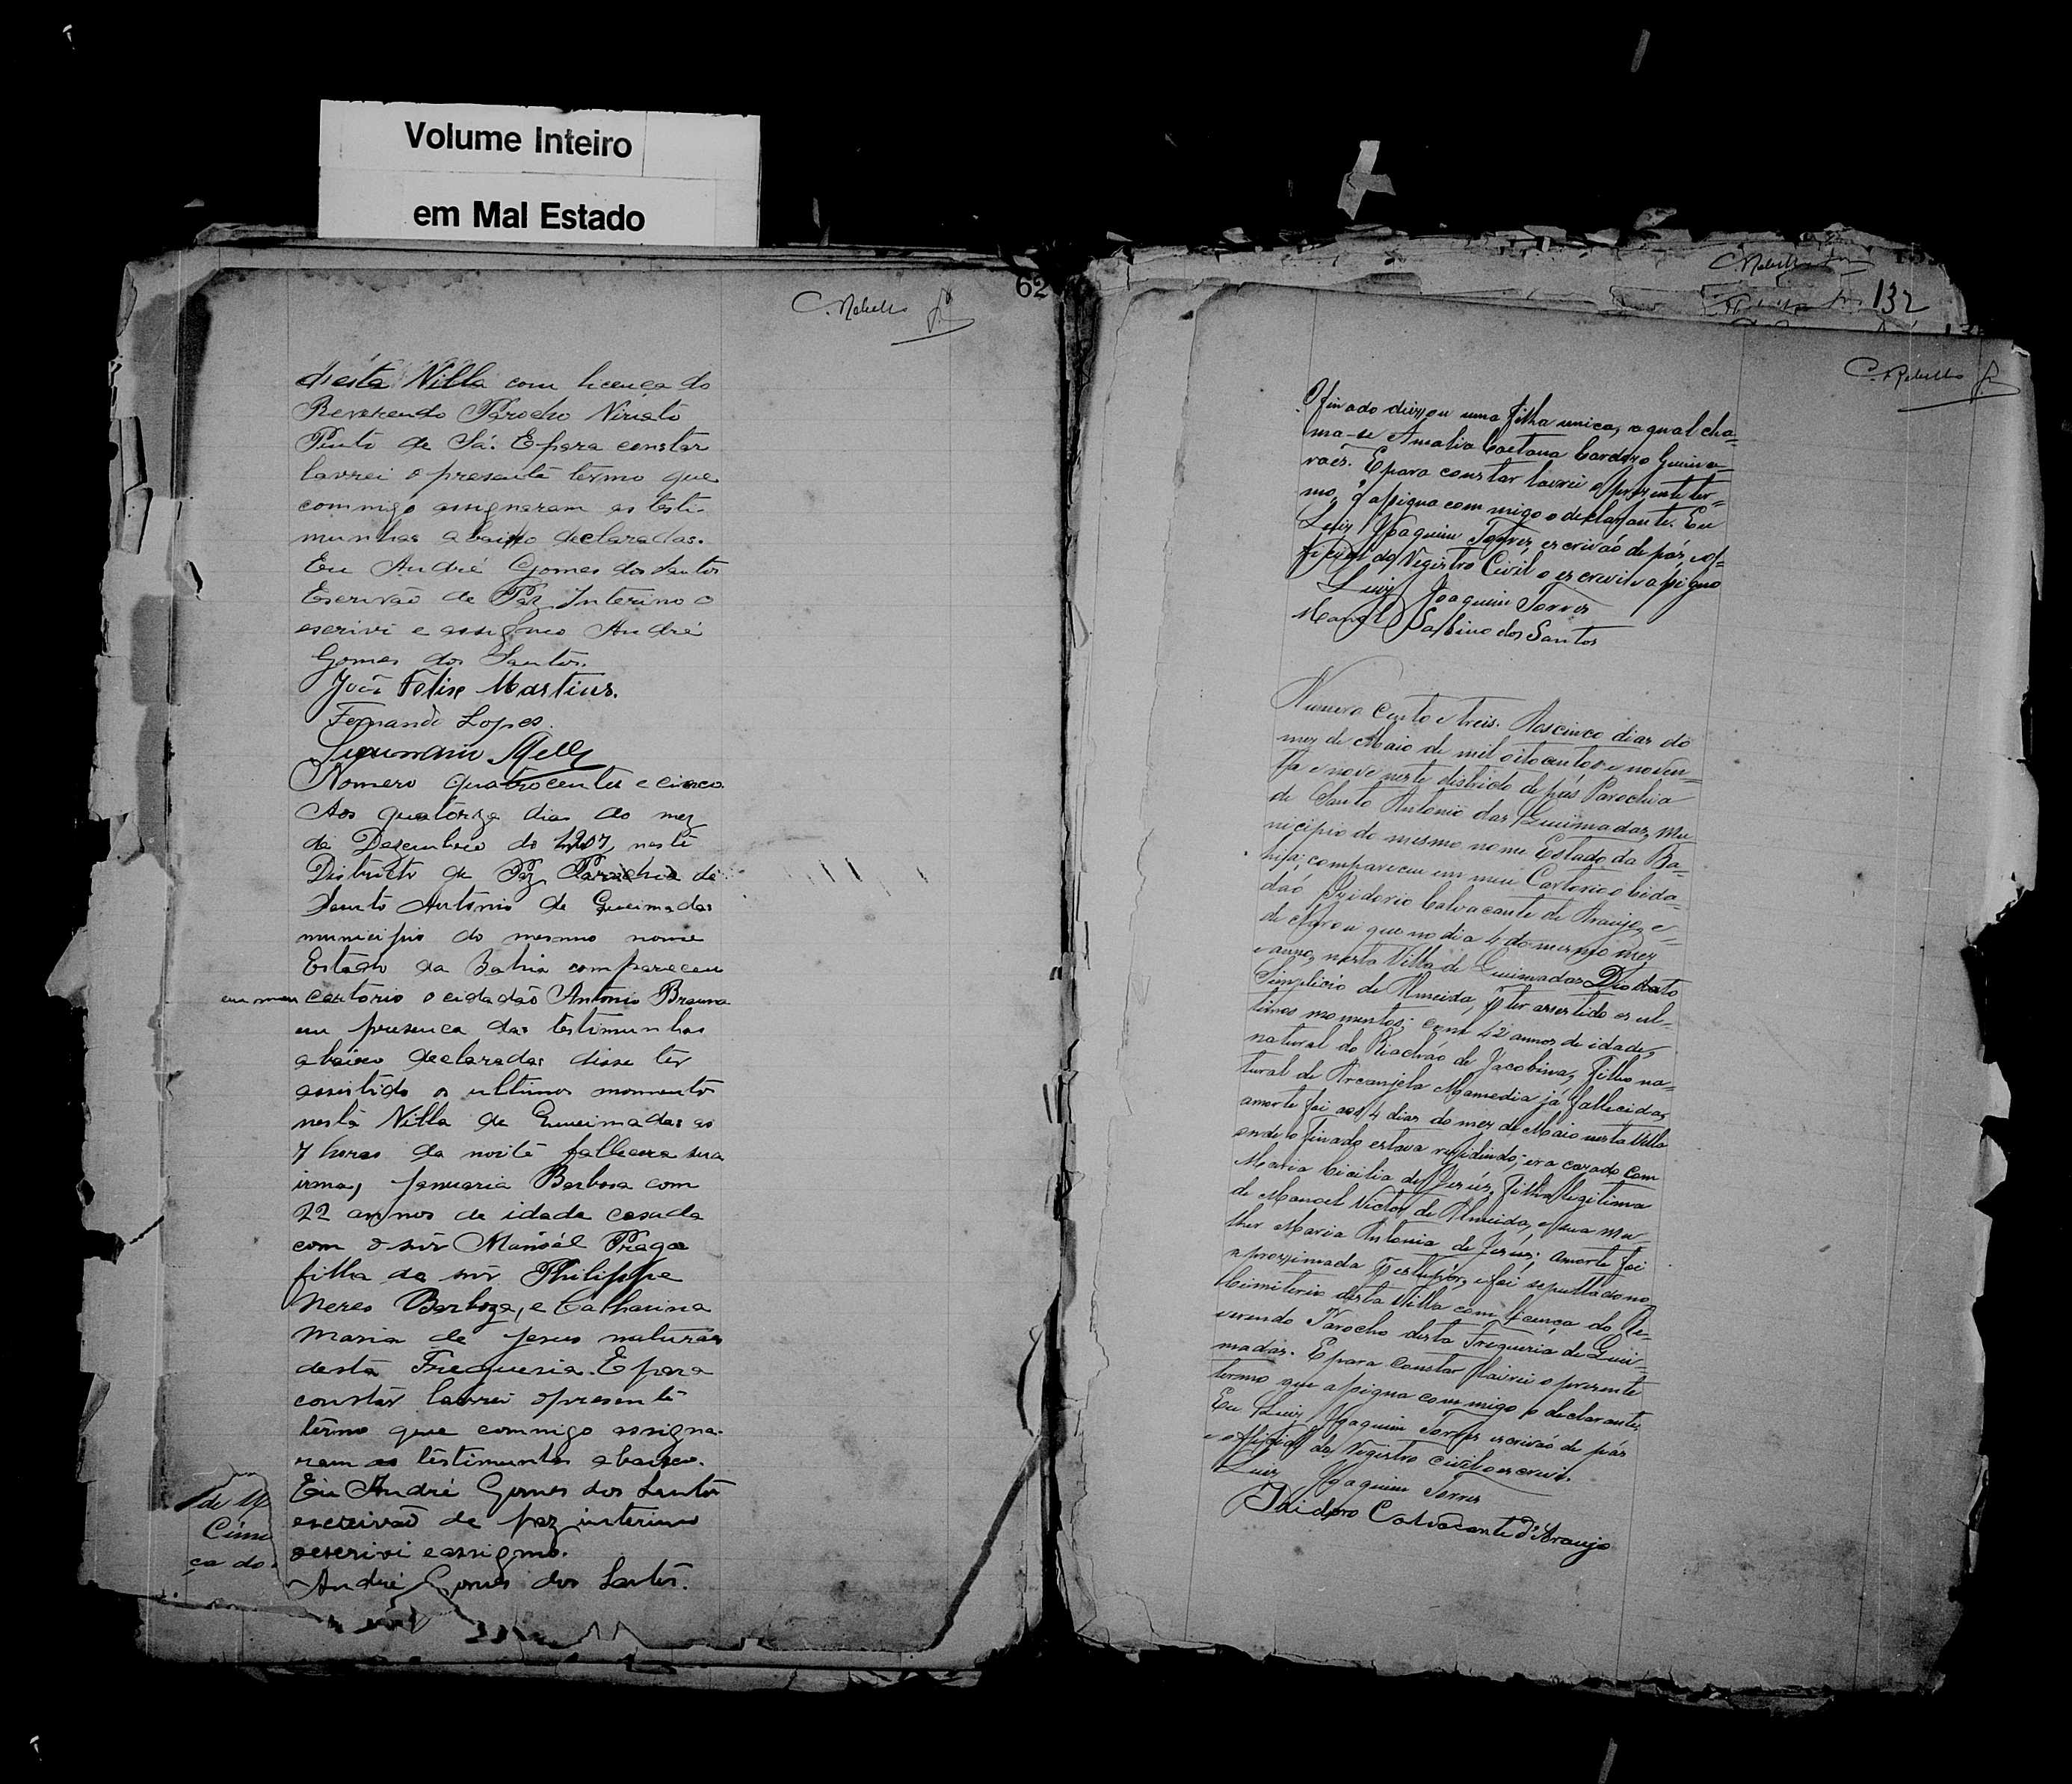 Volume Inteiro
em Mal Estado
62
C. Rebello Jr
d'ésta Villa com licença do
Reverendo Parocho Viriato
Pinto de Sá. E para constar
lavrei o presente termo que
commigo assignaram as testi-
munhas abaixo declaradas.
Eu André Gomes dos Santos
Escrivão de Paz Interino o
escrivi e assigno André
Gomes dos Santos.
João Felix Martins.
Fernando Lopes
Nomero quatrocentos e cinco
Aos quatorze dias do mez
de Dezembro de 1907, neste
Districto de Paz Parochia de
Santo Antonio de Queimadas
municipio do mesmo nome
Estado da Bahia compareceu
em meu cartorio o cidadão Antonio Brauna
em presença das testimunhas
abaixo declaradas disse ter
assistido os ultimos momentos
nesta Villa de Queimadas as
7 horas da noite fallecera sua
irmã, Januaria Barbosa com
22 annos de idade casada
com o snr Manoél Praga
filha do snr Philippe
Neres Barboza, e Catharina
Maria de Jesus naturaes
desta Freguesia. E para
constar lavrei o presente
termo que commigo assigna-
ram as testimunhas abaixo.
Eu André Gomes dos Santos
escrivão de paz interino
o escrivi e assigno.
André Gomes dos Santos.
ça do
132
C. Rebello Jr
O finado deixou uma filha unica, a qual cha-
ma-se Amalia Caetana Cardozo Guima-
raés. E para constar lavrei o presente ter-
mo, q' assigna com migo o declarante. Eu
Luiz Joaquim Torres, escrivão de páz, e of-
ficial do Registro Civil o escrevi e assigno
Luiz Joaquim Torres
Manoel Sabino dos Santos
Numero Cento e treis. Aos cinco dias do
mez de Maio de mil oitocentos e noven-
ta e nove neste districto de páz Parochia
de Santo Antonio das Queimadas, Mu-
nicipio do mesmo nome Estado da Ba-
hia; compareceu em meu Cartorio o Cida-
dão Izidorio Calvacante de Araujo, e
declarou que no dia 4 do mesmo mez
e anno, nesta Villa de Queimadas Deodato
Simplicio de Almeida, q' ter assestido os ul-
timos momentos; com 42 annos de idade,
natural do Riachão de Jacobina, filho na-
tural de Arcanjela Mamedia já fallecida,
a morte foi aos 4 dias do mez de Maio nesta Villa
onde o finado estava residindo; era cazado com
Maria Cicilia de Jesús, filha legitima
de Manoel Victor de Almeida, e sua mu-
lher Maria Antonia de Jesus; a morte foi
aproximada q' estupor, e foi sepultado no
Cimiterio desta Villa com licença do Re-
verendo Parocho desta Freguesia de Quei-
madas. E para constar lavrei o presente
termo que assigna com migo o declarante,
Eu Luiz Joaquim Torres escrivão de páz
e official do Registro Civil o escrevi.
Luiz Joaquim Torres
Izidoro Calvacante d'Araujo